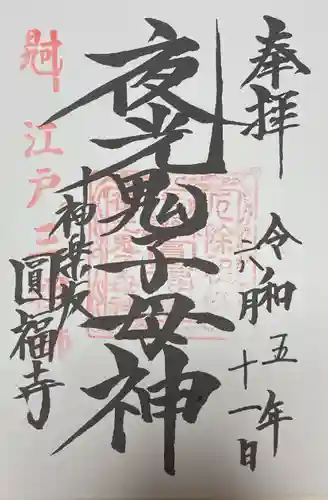 奉拝
令和五年
六月
十一日
夜光鬼子母神
神楽坂
圓福寺
江戸三